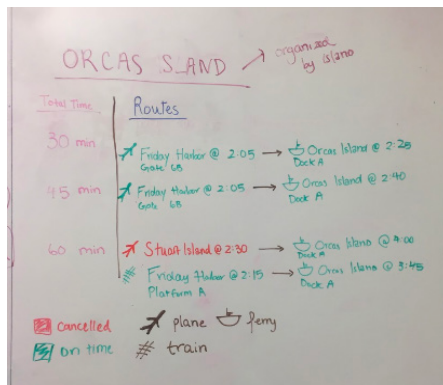 ORCAS ISLAND
organized
by island
Total Time
Routes
30 min
Friday Harbor @ 2:05 → Orcas Island @ 2:25
Gate 6B Dock A
45 min
Friday Harbor @ 2:05 → Orcas Island @ 2:40
Gate 6B Dock A
60 min
Stuart Island @ 2:30 → Orcas Island @ 4:00
Dock A
Friday Harbor @ 2:15 → Orcas Island @ 3:45
Platform A Dock A
cancelled plane ferry
on time train